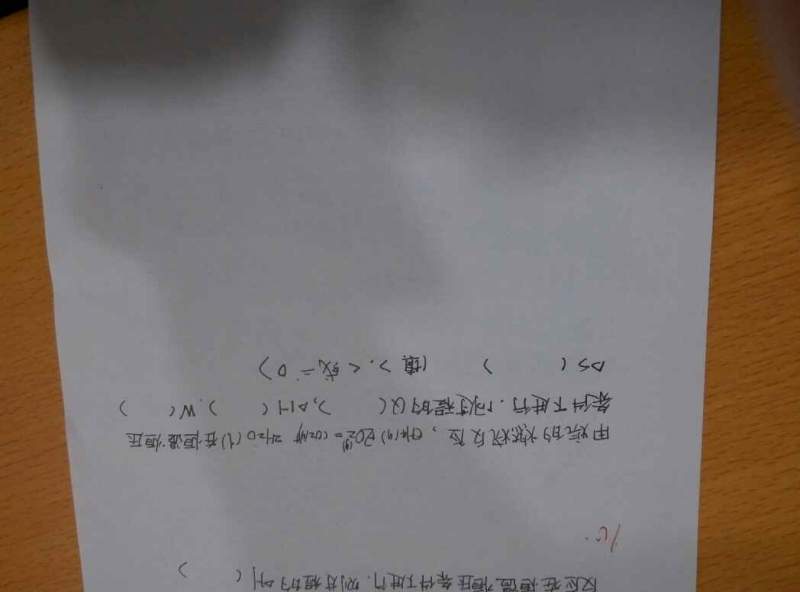 反应在恒温恒压条件下进行.则过程的ΔH (      )
甲烷的燃烧反应, CH4(g) 2O2(g) = CO2(g) 2H2O (l) 在恒温恒压
条件下进行.则过程的Q(      ), ΔH (      ). W(      )
ΔS (      )      (填 >. < 或 = 0)